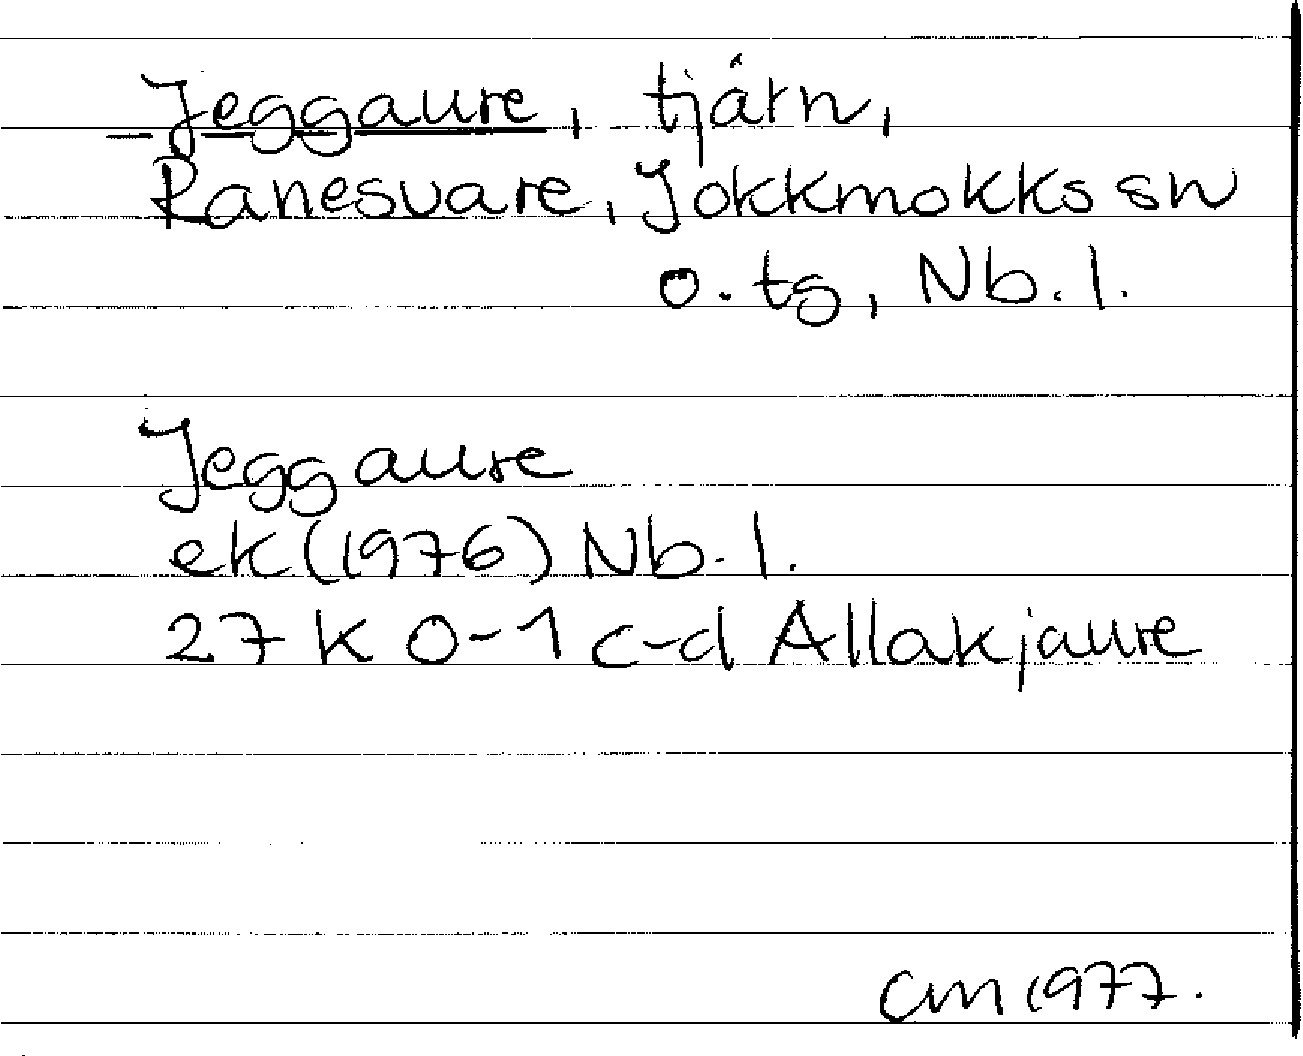 Jeggaure, tjärn,
Ranesvare, Jokkmokks sn
o. tg, Nb. l.
Jeggaure
ek (1976) Nb. l.
27 K 0-1 c-d Allakjaure
CM 1977.